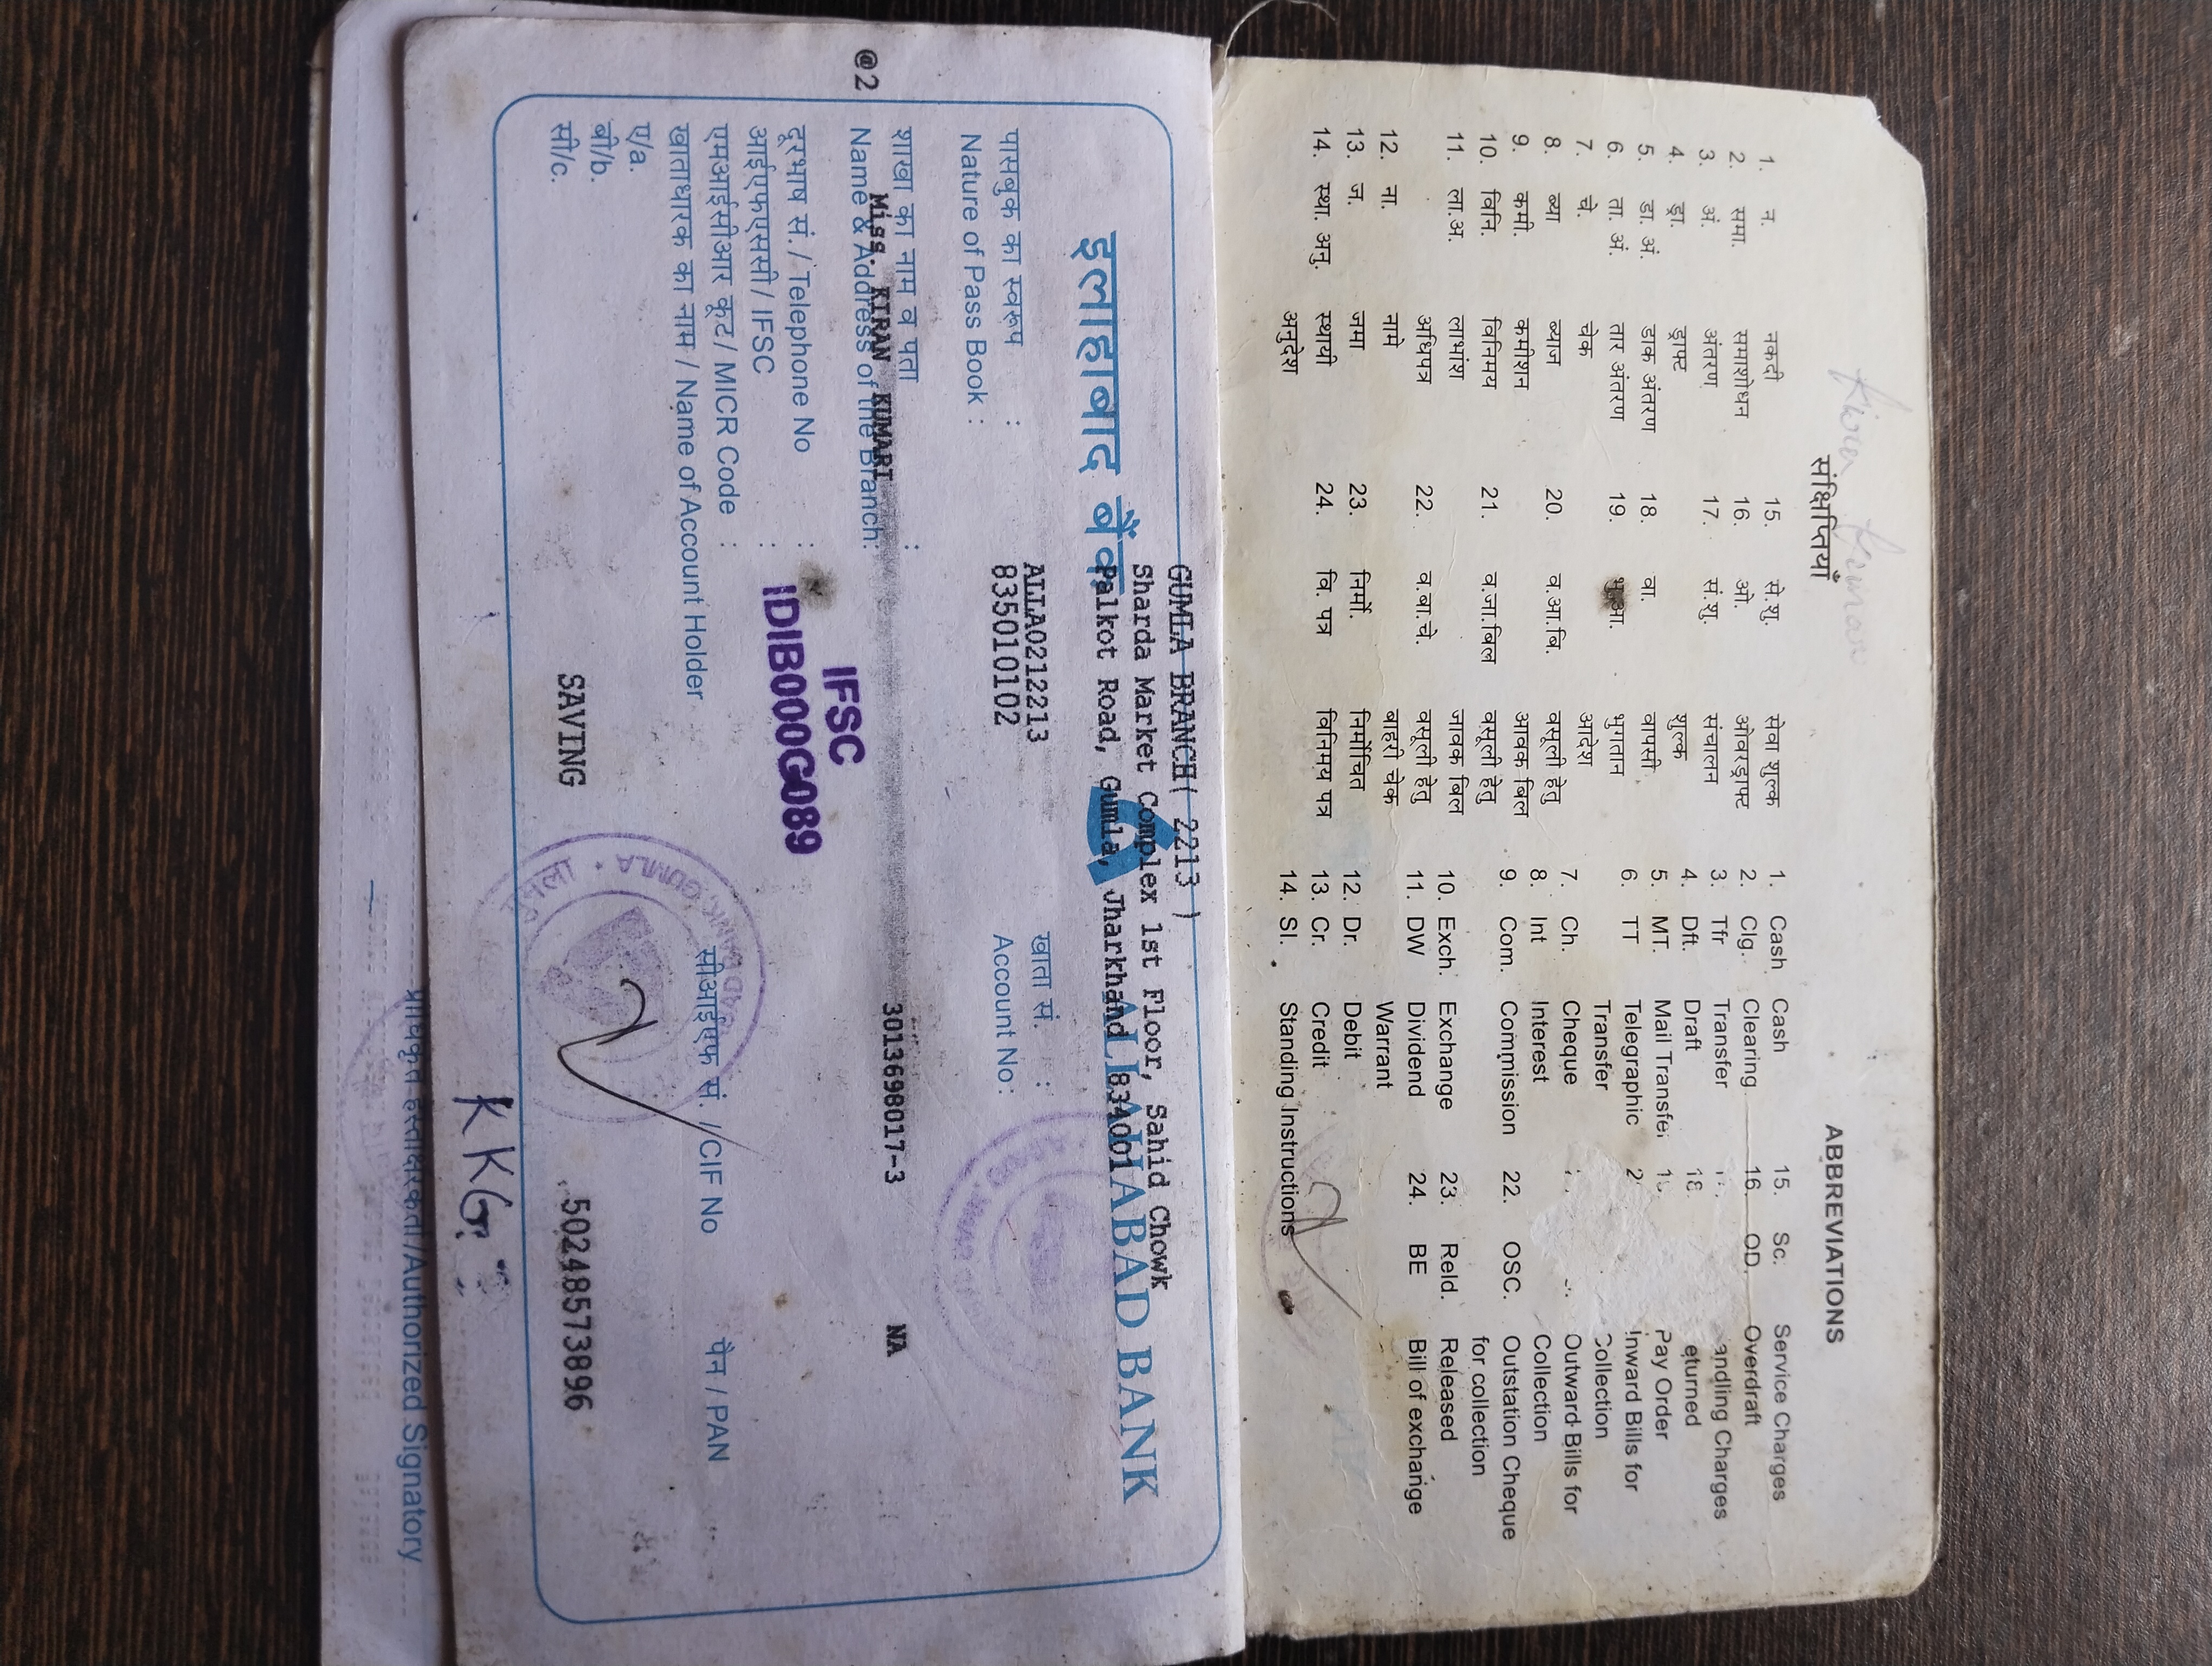 Kiran Kumari
संक्षिप्तियाँ
1. न. नकदी
2. समा. समाशोधन
3. अं. अंतरण
4. ड्रा. ड्राफ्ट
5. डा. अं. डाक अंतरण
6. ता. अं. तार अंतरण
7. चे. चेक
8. ब्या ब्याज
9. कमी. कमीशन
10. विनि. विनिमय
11. ला.अ. लाभांश
अधिपत्र
12. ना. नामे
13. ज. जमा
14. स्था. अनु. स्थायी
अनुदेश
15. से.शु. सेवा शुल्क
16. ओ. ओवरड्राफ्ट
17. सं.शु. संचालन
शुल्क
18. वा. वापसी
19. भु.आ. भुगतान
आदेश
20. व.आ.बि. वसूली हेतु
आवक बिल
21. व.जा.बिल वसूली हेतु
जावक बिल
22. व.बा.चे. वसूली हेतु
बाहरी चेक
23. निर्मो. निर्मोचित
24. वि. पत्र विनिमय पत्र
ABBREVIATIONS
1. Cash Cash
2. Clg. Clearing
3. Tfr Transfer
4. Dft. Draft
5. MT. Mail Transfer
6. TT Telegraphic
Transfer
7. Ch. Cheque
8. Int Interest
9. Com. Commission
10. Exch. Exchange
11. DW Dividend
Warrant
12. Dr. Debit
13. Cr. Credit
14. SI. Standing Instructions
15. Sc. Service Charges
16. OD. Overdraft
andling Charges
18 eturned
Pay Order
2 Inward Bills for
Collection
Outward Bills for
Collection
22. OSC. Outstation Cheque
for collection
23. Reld. Released
24. BE Bill of exchange
GUMLA BRANCH( 2213 )
Sharda Market Complex 1st Floor, Sahid Chowk
Palkot Road, Gumla, Jharkhand 834001
इलाहाबाद बैंक ALLAHABAD BANK
ALLA0212213
835010102
पासबुक का स्वरूप : खाता सं. :
Nature of Pass Book : Account No :
शाखा का नाम व पता :
Name & Address of the Branch:
@2 Miss. KIRAN KUMARI 3013698017-3 NA
दूरभाष सं. / Telephone No :
आईएफएससी / IFSC :
IFSC
IDIB000G089
एमआईसीआर कूट / MICR Code :
खाताधारक का नाम / Name of Account Holder सीआईएफ सं. / CIF No पैन / PAN
ए/a.
बी/b.
सी/c.
SAVING 50248573896
GUMLA
KKG
प्राधिकृत हस्ताक्षरकर्ता /Authorized Signatory